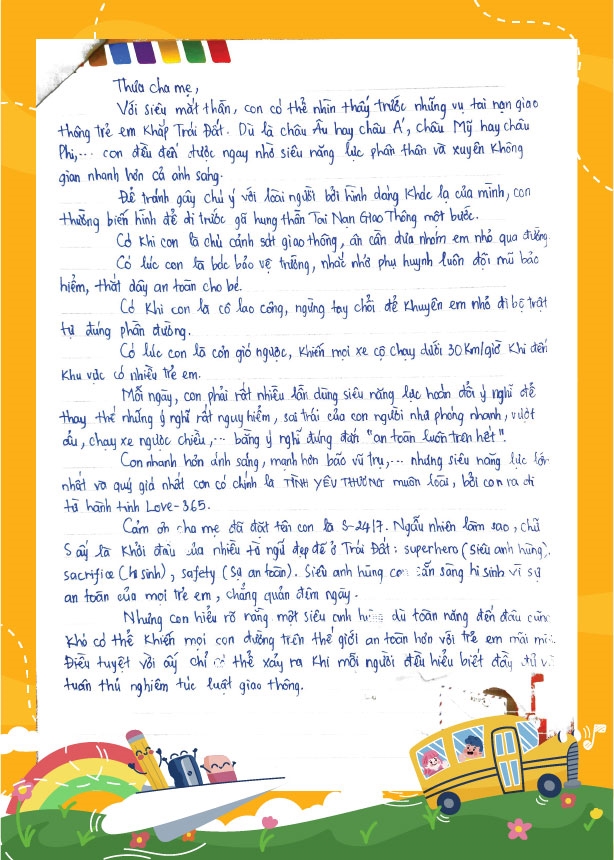 Thưa cha mẹ,
Với siêu mắt thần, con có thể nhìn thấy trước những vụ tai nạn giao
thông trẻ em khắp Trái Đất. Dù là châu Âu hay châu Á, châu Mỹ hay châu
Phi,... con đều đến được ngay nhờ siêu năng lực phân thân và xuyên không
gian nhanh hơn cả ánh sáng.
Để tránh gây chú ý với loài người bởi hình dáng khác lạ của mình, con
thường biến hình để đi trước gã hung thần Tai Nạn Giao Thông một bước.
Có khi con là chú cảnh sát giao thông, ân cần đưa nhóm em nhỏ qua đường.
Có lúc con là bác bảo vệ trường, nhắc nhở phụ huynh luôn đội mũ bảo
hiểm, thắt dây an toàn cho bé.
Có khi con là cô lao công, ngừng tay chổi để khuyên em nhỏ đi bộ trật
tự đúng phần đường.
Có lúc con là cơn gió ngược, khiến mọi xe cộ chạy dưới 30Km/giờ khi đến
khu vực có nhiều trẻ em.
Mỗi ngày, con phải rất nhiều lần dùng siêu năng lực hoán đổi ý nghĩ để
thay thế những ý nghĩ rất nguy hiểm, sai trái của con người như phóng nhanh, vượt
ẩu, chạy xe ngược chiều,... bằng ý nghĩ đúng đắn "an toàn luôn trên hết".
Con nhanh hơn ánh sáng, mạnh hơn bão vũ trụ,... nhưng siêu năng lực lớn
nhất và quý giá nhất con có chính là TÌNH YÊU THƯƠNG muôn loài, bởi con ra đi
từ hành tinh Love-365.
Cảm ơn cha mẹ đã đặt tên con là S-24/7. Ngẫu nhiên làm sao, chữ
S ấy là khởi đầu của nhiều từ ngữ đẹp đẽ ở Trái Đất: superhero (siêu anh hùng),
sacrifice (hi sinh), safety (sự an toàn). Siêu anh hùng con sẵn sàng hi sinh vì sự
an toàn của mọi trẻ em, chẳng quản đêm ngày.
Nhưng con hiểu rõ rằng một siêu anh hùng dù toàn năng đến đâu cũng
khó có thể khiến mọi con đường trên thế giới an toàn hơn với trẻ em mãi mãi.
Điều tuyệt vời ấy chỉ có thể xảy ra khi mỗi người đều hiểu biết đầy đủ và
tuân thủ nghiêm túc luật giao thông.